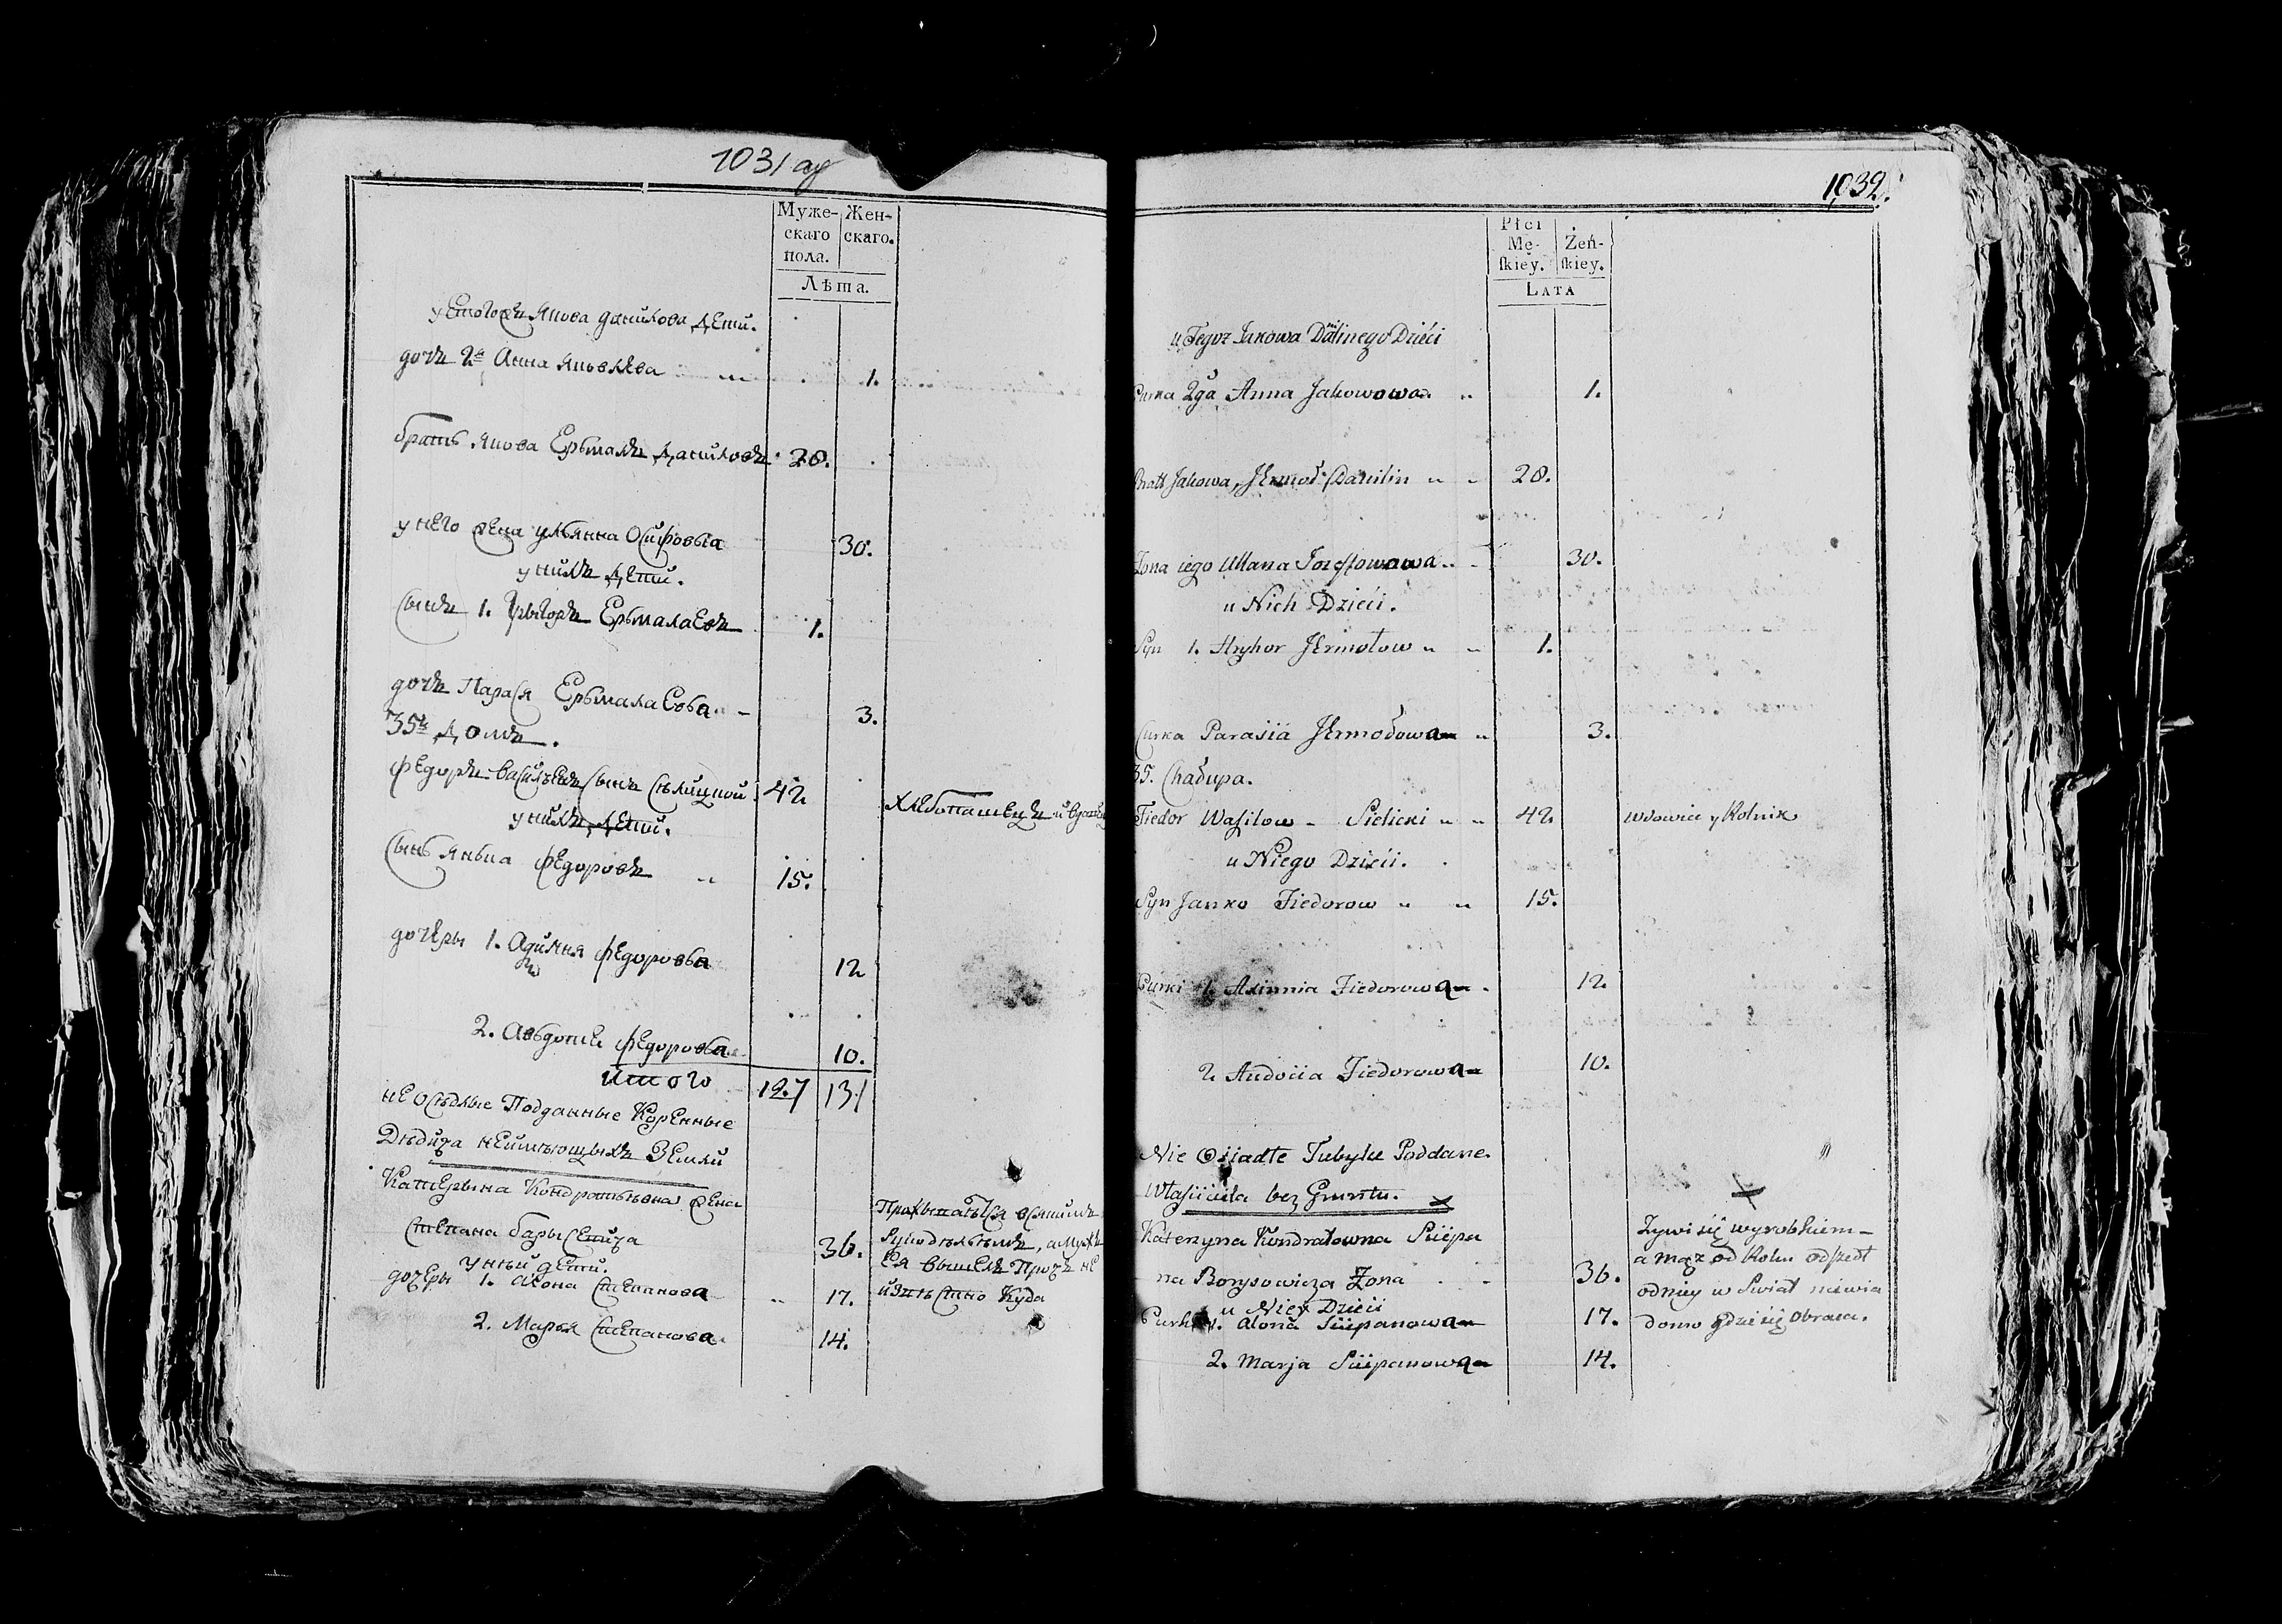 1031 об
Муже- Жен-
скаго скаго.
пола.
Лѣта.
у Етогожъ Якова данилова дЕти.
дочъ 2я Анна Яковлева 1.
братъ Якова Ерьмалъ даниловъ 28.
у нЕго жЕна ульянна Осифовна 30.
у нихъ дЕти.
Сынъ 1. Грыгоръ ЕрьмалаЕвъ 1.
дочъ Парася ЕрьмалаЕва 3.
35й домъ.
фЕдоръ васильЕвъ Сынъ Сѣлицкой 42
ХлЕбопашЕцъ и
у нихъ дЕти.
Сынъ Янька фЕдоровъ 15.
дочЕры 1. фЕдорова 12
2. Авдотья фЕдорова 10.
Итого 127 131
нЕ Осѣдлые Подданные КорЕнные
Дѣдича нЕимѣющыхъ ЗЕмли
КатЕрына Кондратьевна жЕна
СтЕпана барысЕвича 36.
ПрапытаЪтся всякимъ
Рукодѣльѣмъ, а мужъ
Ея вышЕлъ Прочъ нЕ
извѣстно Куда
у нЕй дЕти.
дочЕры 1. алЕна СтЕпанова 17.
2. Марья СтЕпанова 14.
1032.
Płci
Mę- Żeń-
ſkiey. ſkiey.
LATA
u Tegoż Jakowa Daniłnego Dzieci
Curka 2ga Anna Jakowowa 1.
Bratt Jakowa, Jermoł Daniłin 28.
Żona iego Ullana Jozefowowa 30.
u Nich Dzieci.
Syn 1. Hryhor Jermołow 1.
Curka Parasiia Jermołowa 3.
35. Chałupa.
Fiedor Wasilow - Sielicki 42. Wdowiec y Rolnik
u Niego Dzieci.
Syn Janko Fiedorow 15.
Curki 1. Axinnia Fiedorowa 12.
2. Audocia Fiedorowa 10.
Nie Osiadłe Tubylce Poddane
Własciciela bez Gruntu.
Katerzyna Kondratowna Sciepa
na Borysowicza Żona 36.
Żywi się wyrobkiem -
a mąż od Roku odszedł
odniey w Swiat niewia
domo gdzie się obraca.
u Niey Dzieci
Curki 1. Alona Sciepanowa 17.
2. Marja Sciepanowa 14.